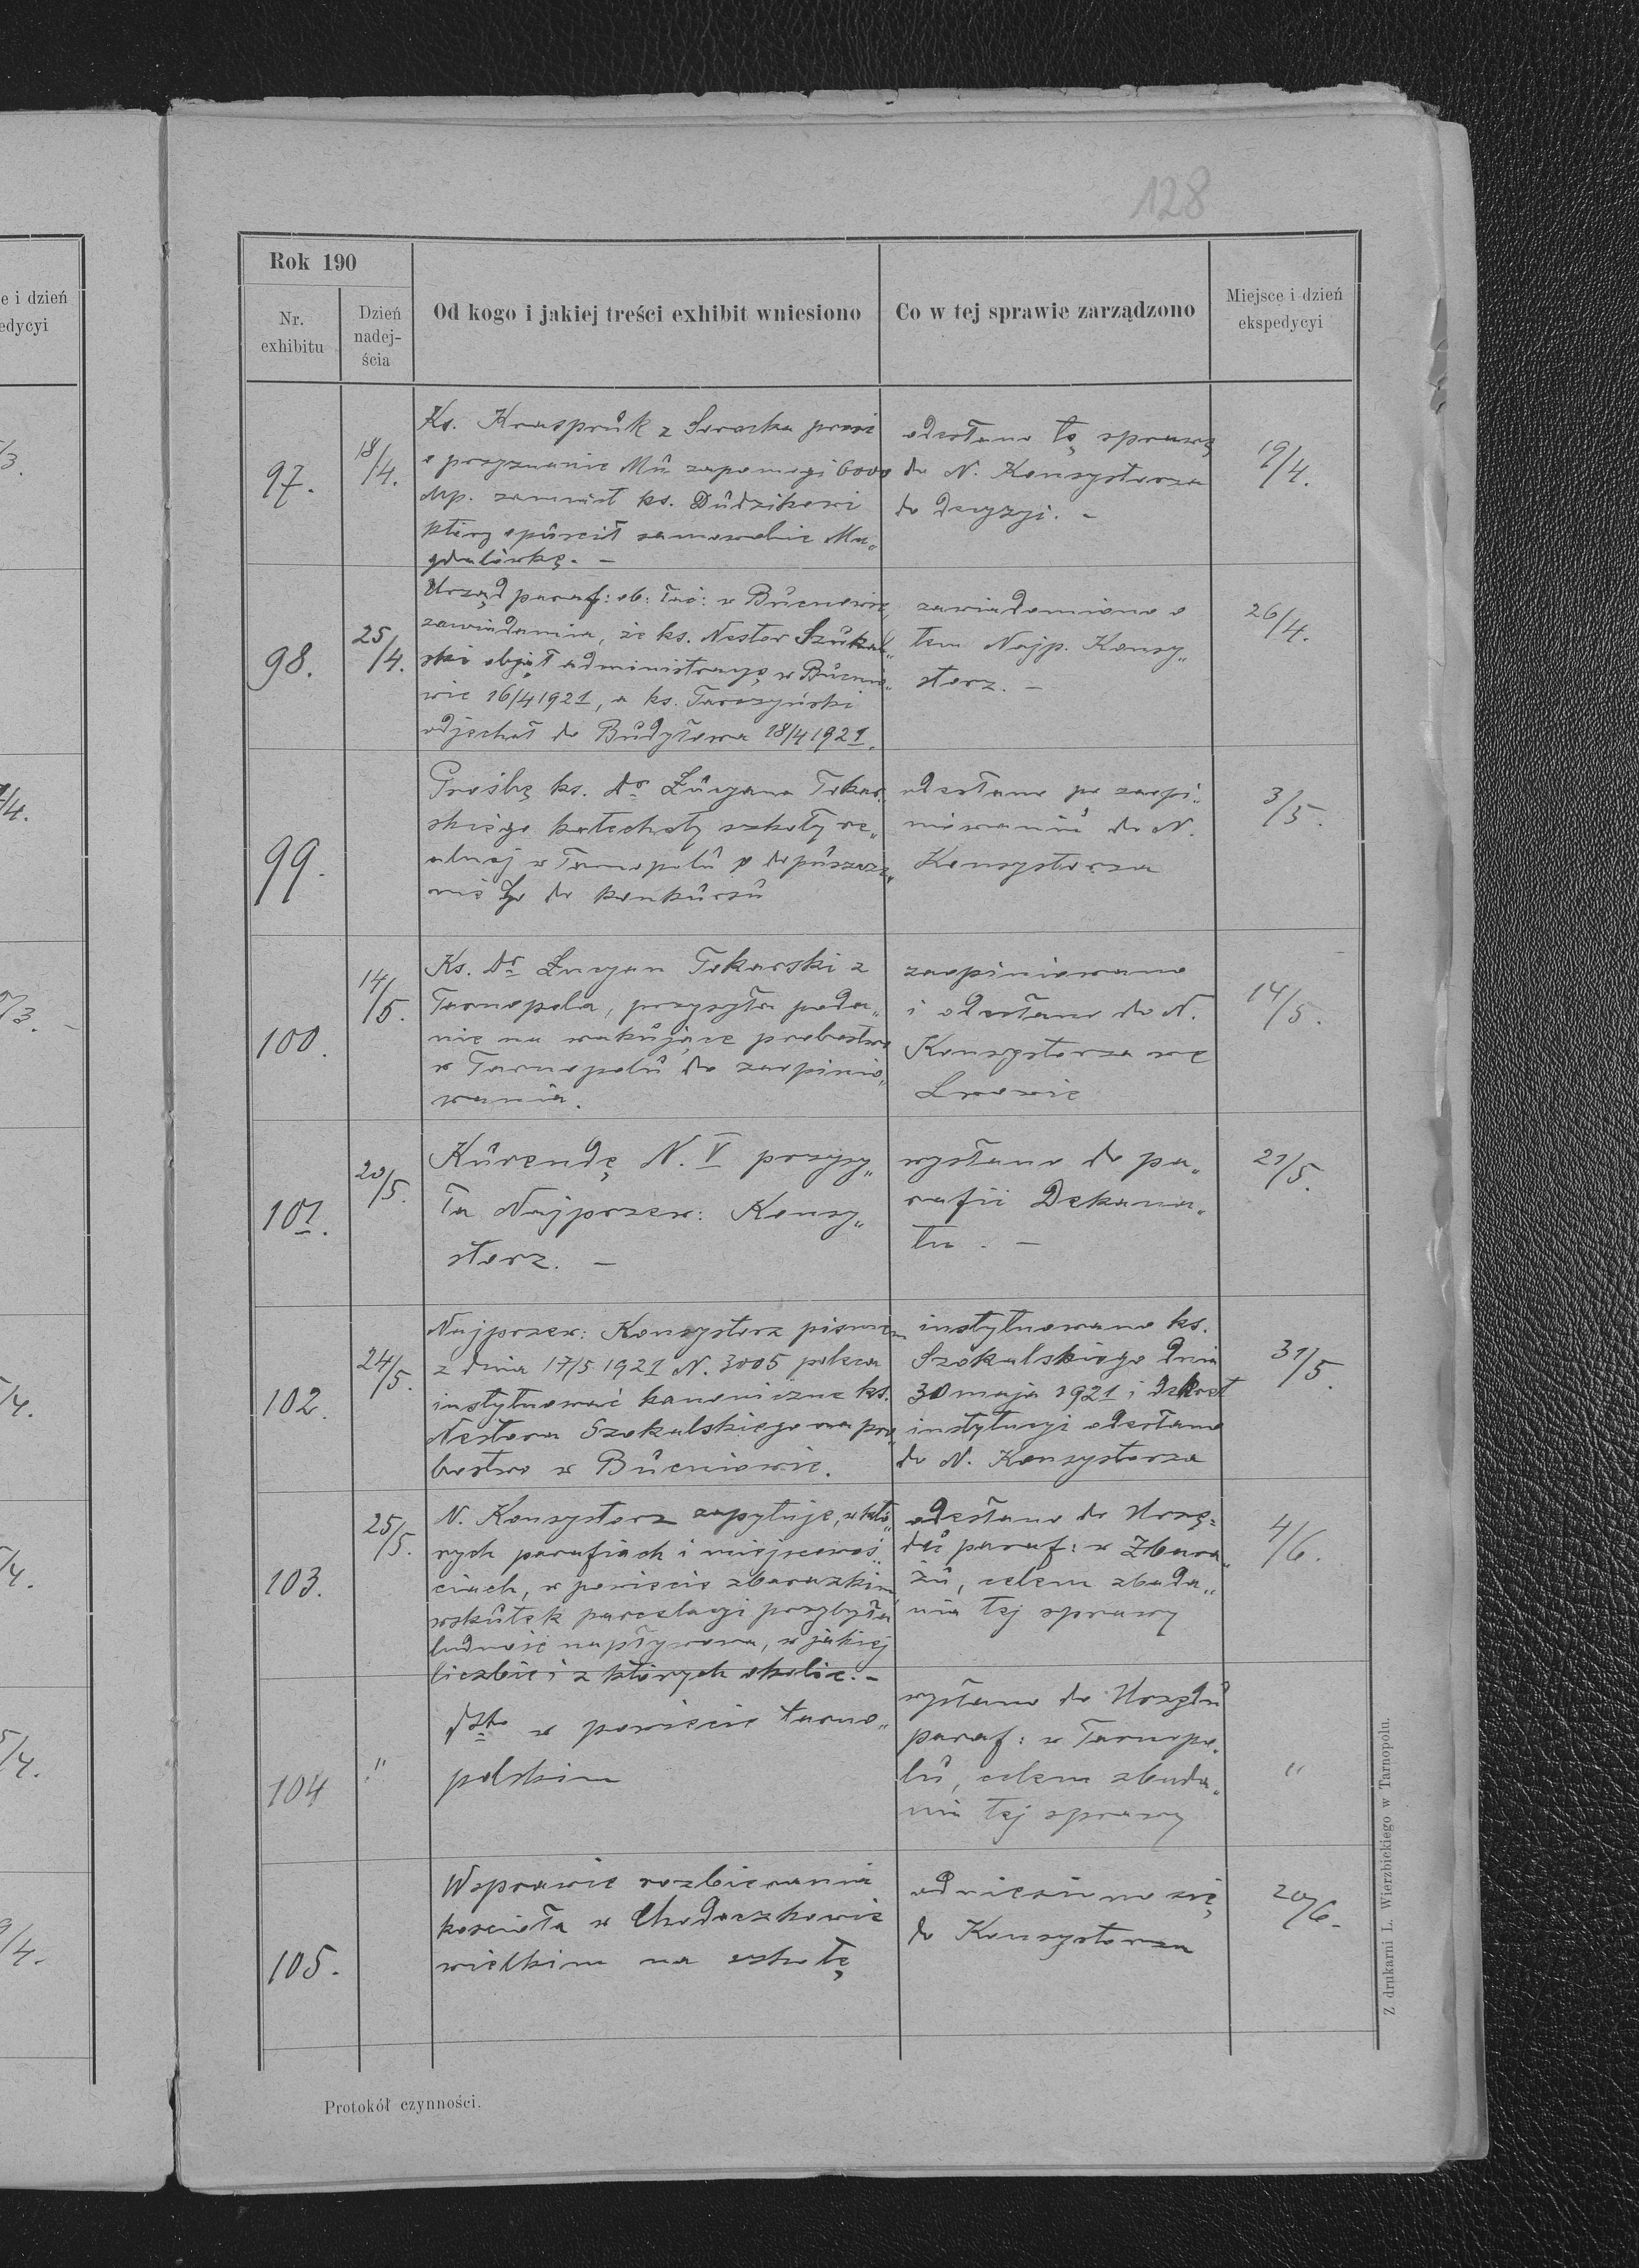 128
e i dzień
edycyi
Rok 190
Nr.
exhibitu
Dzień
nadej-
ścia
Od kogo i jakiej treści exhibit wniesiono
Co w tej sprawie zarządzono
Miejsce i dzień
ekspedycyi
97.
18/4.
Ks. Krasprůk z Soroka prosi
o przyznanie Mů zapomogi 6000
Mp. zamiast ks. Důdzikowi
który opůścił samowolnie Ma„
gdalówkę. –
odesłano tę sprawę
do N. Konsystorza
do decyzyi. –
19/4.
98.
25/4.
Urząd paraf: ob: łac: w Bůcniowie
zawiadamia, że ks. Nestor Szůkal„
ski objął administracyę w Bůcnio„
wie 16/4 1921, a ks. Taroszyński
odjechał do Bůdyłowa 18/4 1921.
zawiadomiono o
tem Najp. Konsy„
storz. –
26/4.
99.
Prośbę ks. Dr Łůcyana Tokar„
skiego katechety szkoły re„
alnej w Tarnopolů o dopůszcze„
nie Go do konkůrsů
odesłano po zaopi„
niowaniů do N.
Konsystorza
3/5.
100.
14/5.
Ks. Dr Łucyan Tokarski z
Tarnopola, przysyła poda„
nie na wakůjące probostwo
w Tarnopolů do zaopinio„
wania.
zaopiniowano
i odesłano do N.
Konsystorza we
Lwowie
14/5.
101.
20/5.
Kůrendę N. V przysy„
ła Najprzew: Konsy„
storz. –
wysłano do pa„
rafii Dekana„
tu. –
21/5.
102.
24/5.
Najprzew: Konsystorz pismem
z dnia 17/5 1921 N. 3005 poleca
instytuować kanonicznie ks.
Nestora Szokalskiego na pro„
bostwo w Bůcniowie.
instytuowano ks.
Szokalskiego dnia
30 maja 1921 i dekret
instytucyi odesłano
do N. Konsystorza
31/5.
103.
25/5.
N. Konsystorz zapytuje, w któ„
rych parafiach i miejscowoś„
ciach, w powiecie zbarazkim
wskůtek parcelacyi przybyła
ludność napływowa, w jakiej
liczbie i z których okolic. –
odesłano do Urzę=
dů paraf: w Zbara„
żů, celem zbada„
nia tej sprawy
4/6.
104
"
dtto w powiecie tarno„
polskim
wysłano do Urzędů
paraf: w Tarnopo„
lů, celem zbada„
nia tej sprawy
"
105.
W sprawie rozbierania
kościoła w Chodaczkowie
wielkim na szkołę
odniesiono się
do Konsystorza
20/6.
Protokół czynności.
Z drukarni L. Wierzbickiego w Tarnopolu.